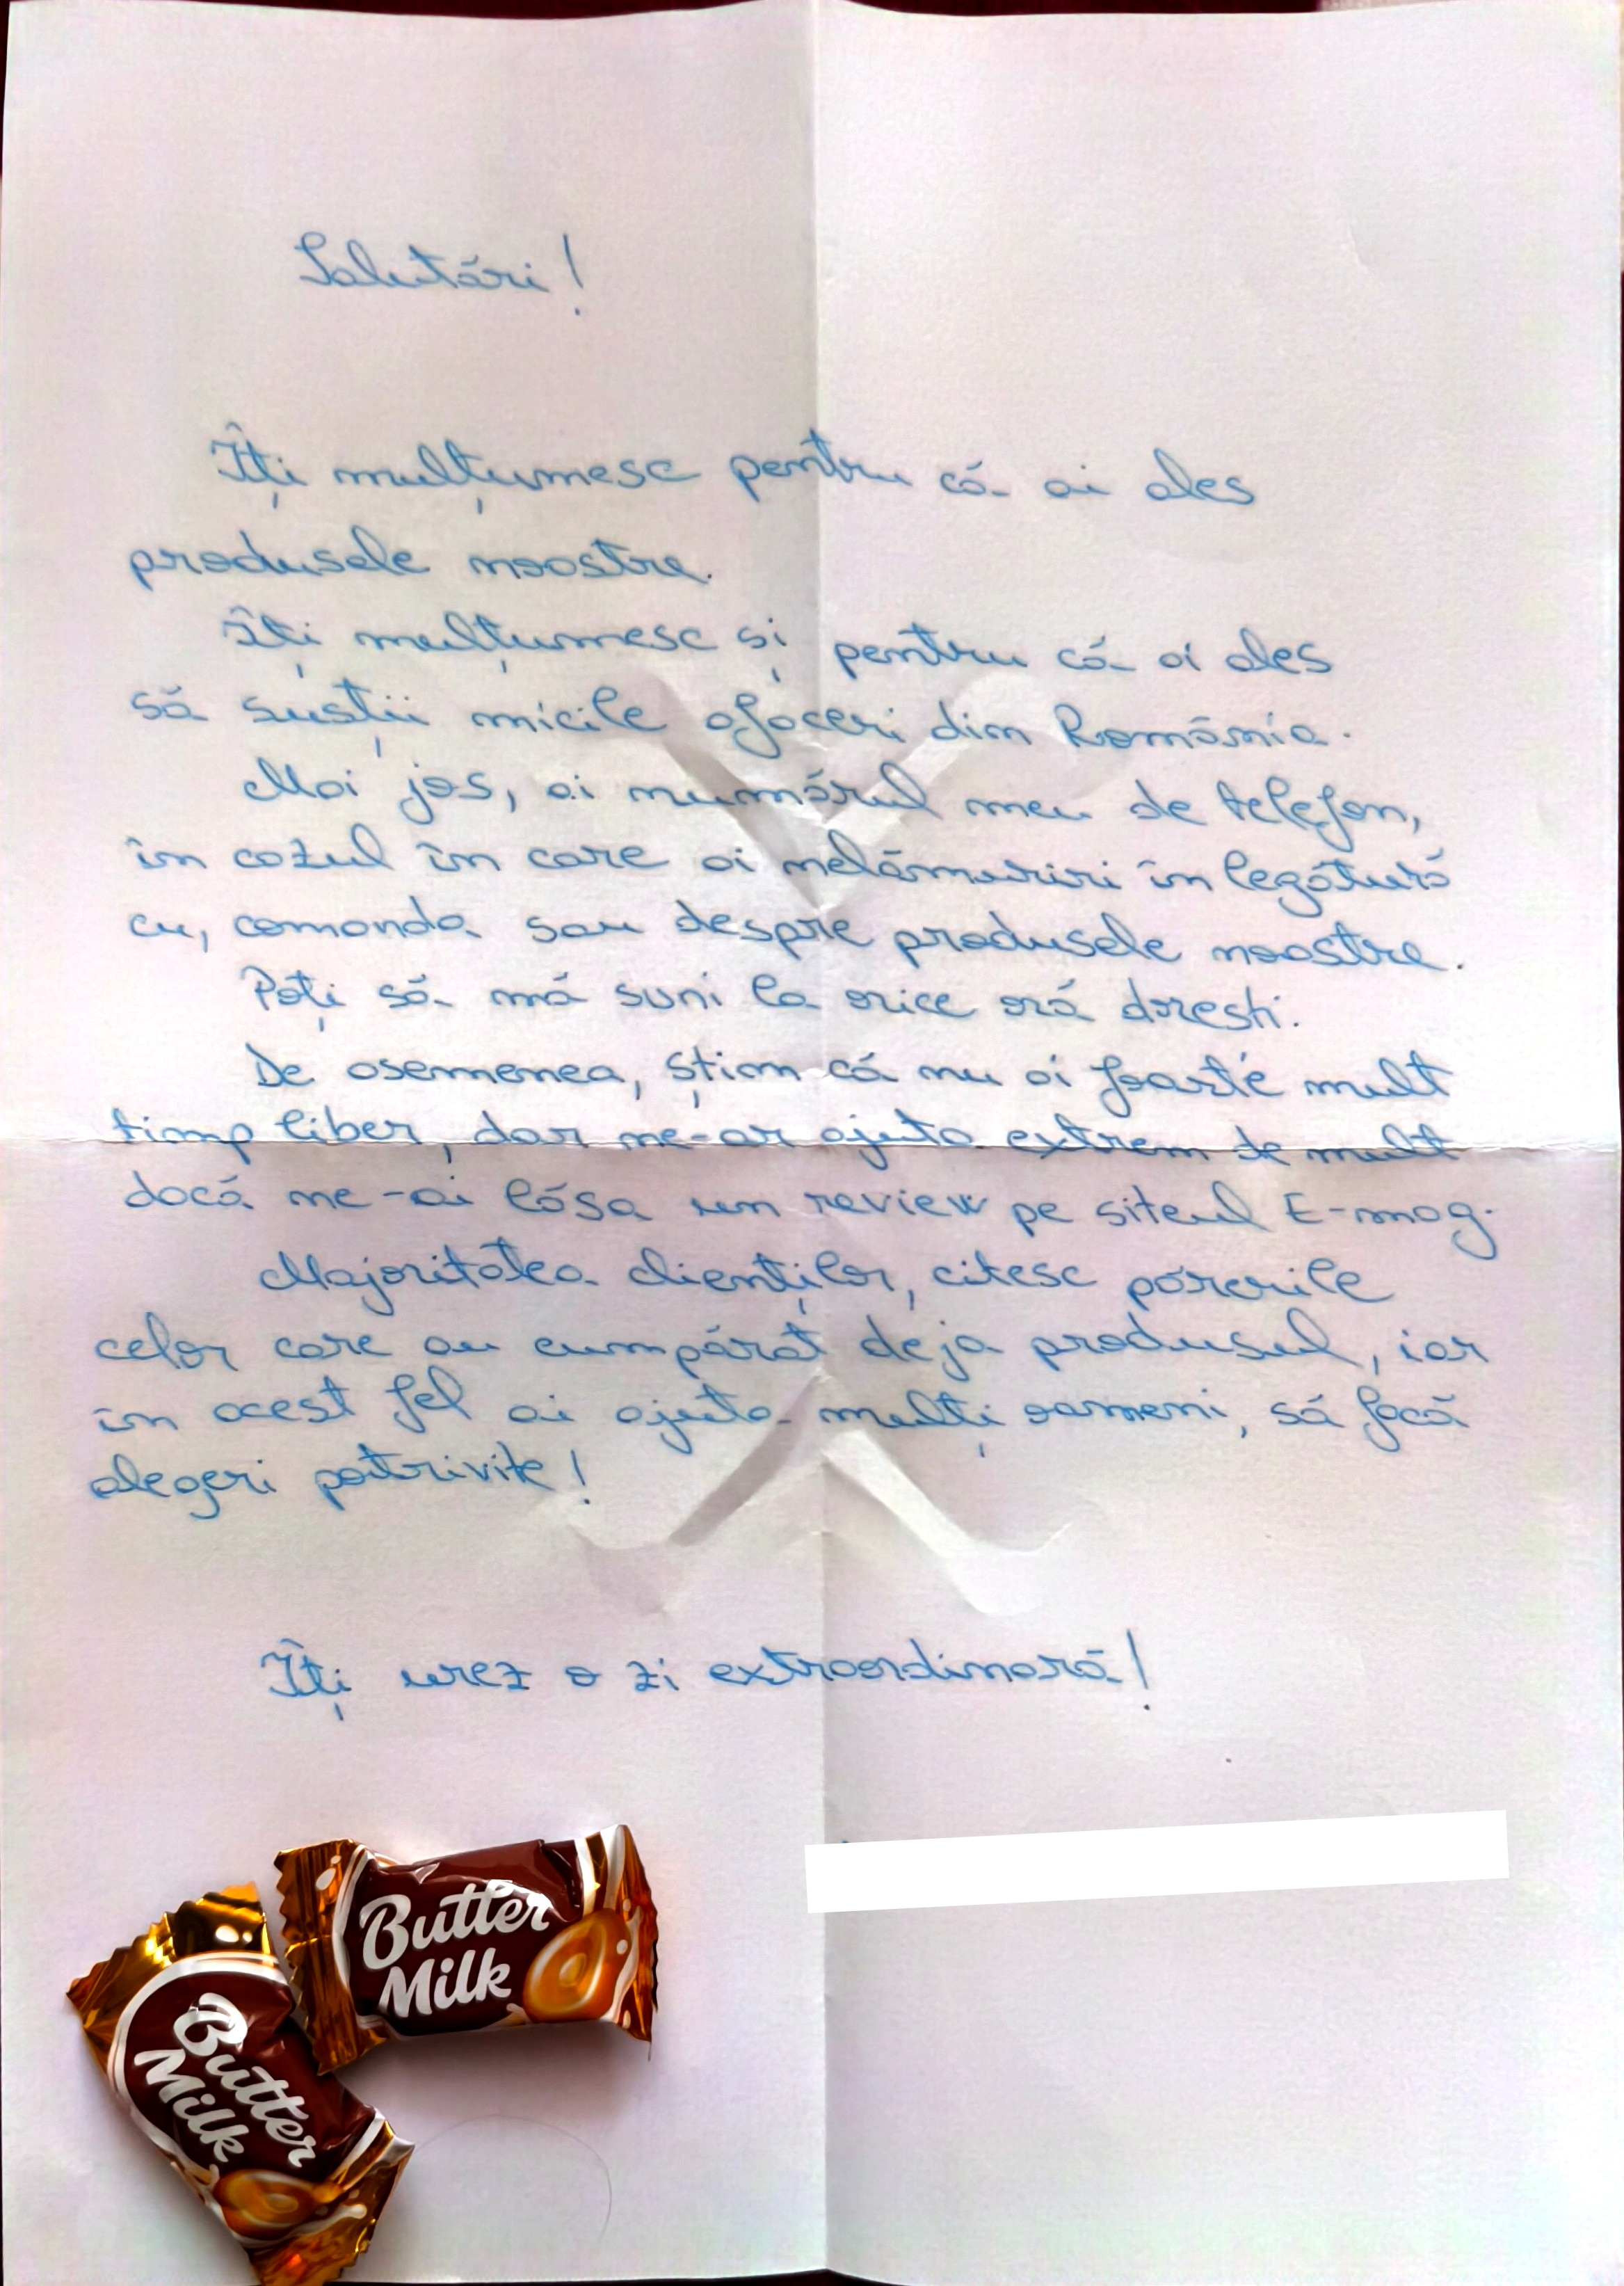 Salutări!
Îți mulțumesc pentru că ai ales
produsele noastre.
Îți mulțumesc și pentru că ai ales
să susții micile afaceri din România.
Mai jos, ai numărul meu de telefon,
în cazul în care ai nelămuriri în legătură
cu, comanda sau despre produsele noastre.
Poți să mă suni la orice oră dorești.
De asemenea, știm că nu ai foarte mult
timp liber, dar ne-ar ajuta extrem de mult
dacă ne-ai lăsa un review pe siteul E-mag.
Majoritatea clienților, citesc părerile
celor care au cumpărat deja produsul, iar
în acest fel ai ajuta mulți oameni, să facă
alegeri potrivite!
Îți urez o zi extraordinară!
Butter
Milk
Butter
Milk